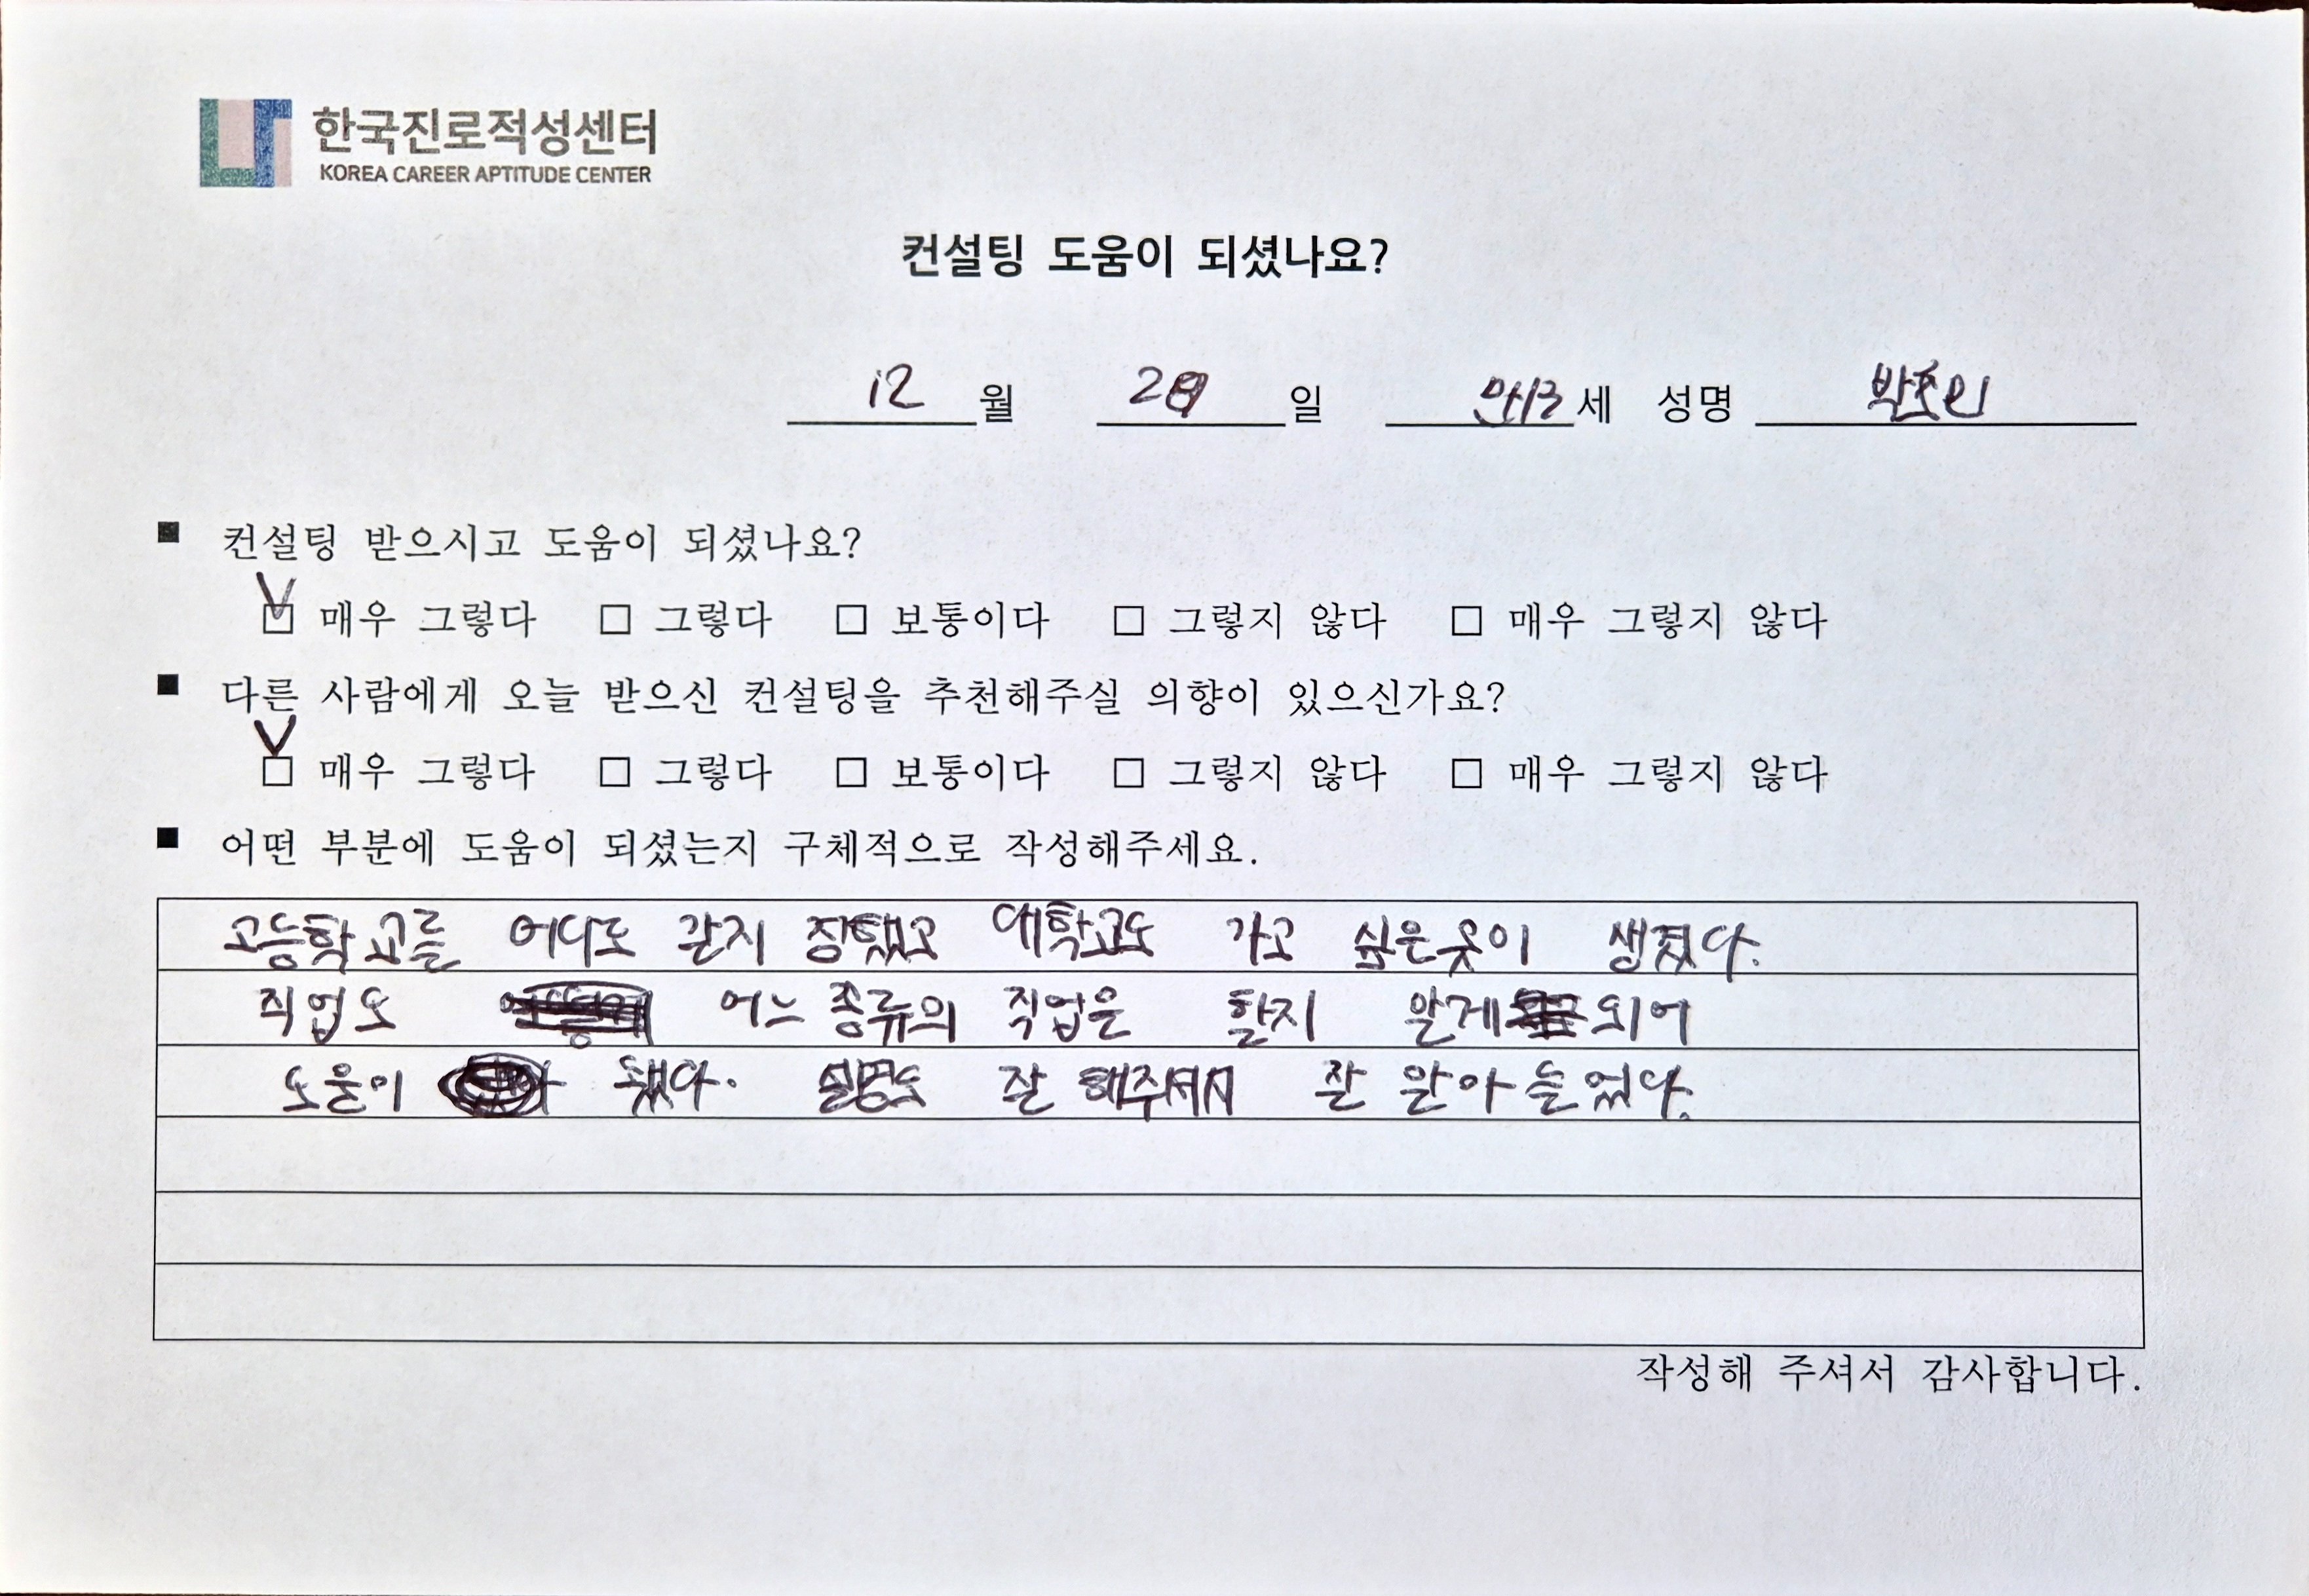 한국진로적성센터
KOREA CAREER APTITUDE CENTER
컨설팅 도움이 되셨나요?
12 월 일 만13 세 성명
■ 컨설팅 받으시고 도움이 되셨나요?
☑ 매우 그렇다 □ 그렇다 □ 보통이다 □ 그렇지 않다 □ 매우 그렇지 않다
■ 다른 사람에게 오늘 받으신 컨설팅을 추천해주실 의향이 있으신가요?
☑ 매우 그렇다 □ 그렇다 □ 보통이다 □ 그렇지 않다 □ 매우 그렇지 않다
■ 어떤 부분에 도움이 되셨는지 구체적으로 작성해주세요.
고등학교를 어디로 갈지 정했고 대학교도 가고 싶은 곳이 생겼다.
직업도 어느 종류의 직업을 할지 알게 되어
도움이 됐다. 설명도 잘 해주셔서 잘 알아 들었다.
작성해 주셔서 감사합니다.